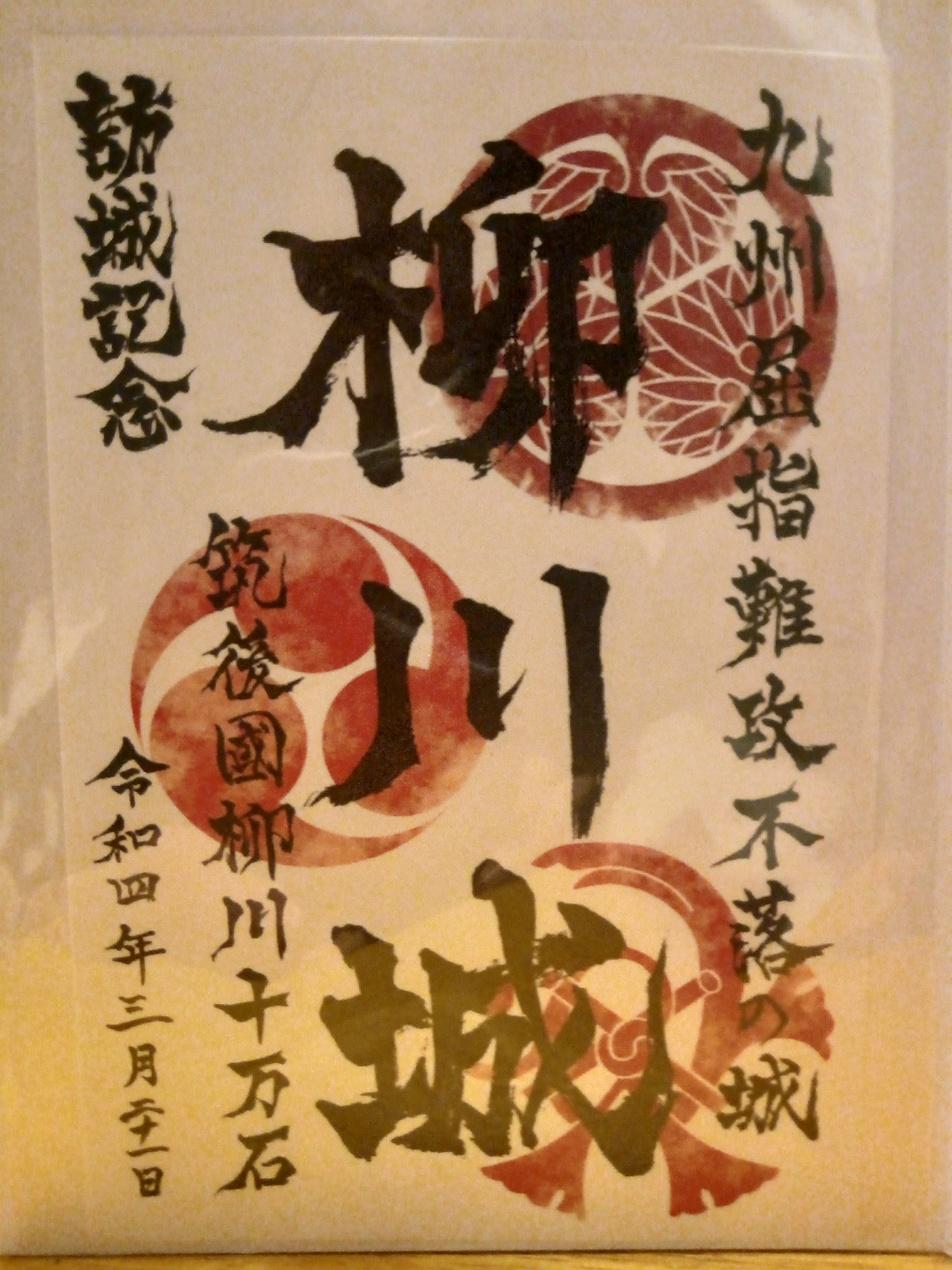 九州屈指難攻不落の城
柳川城
筑後國柳川十万石
訪城記念
令和四年三月二十一日